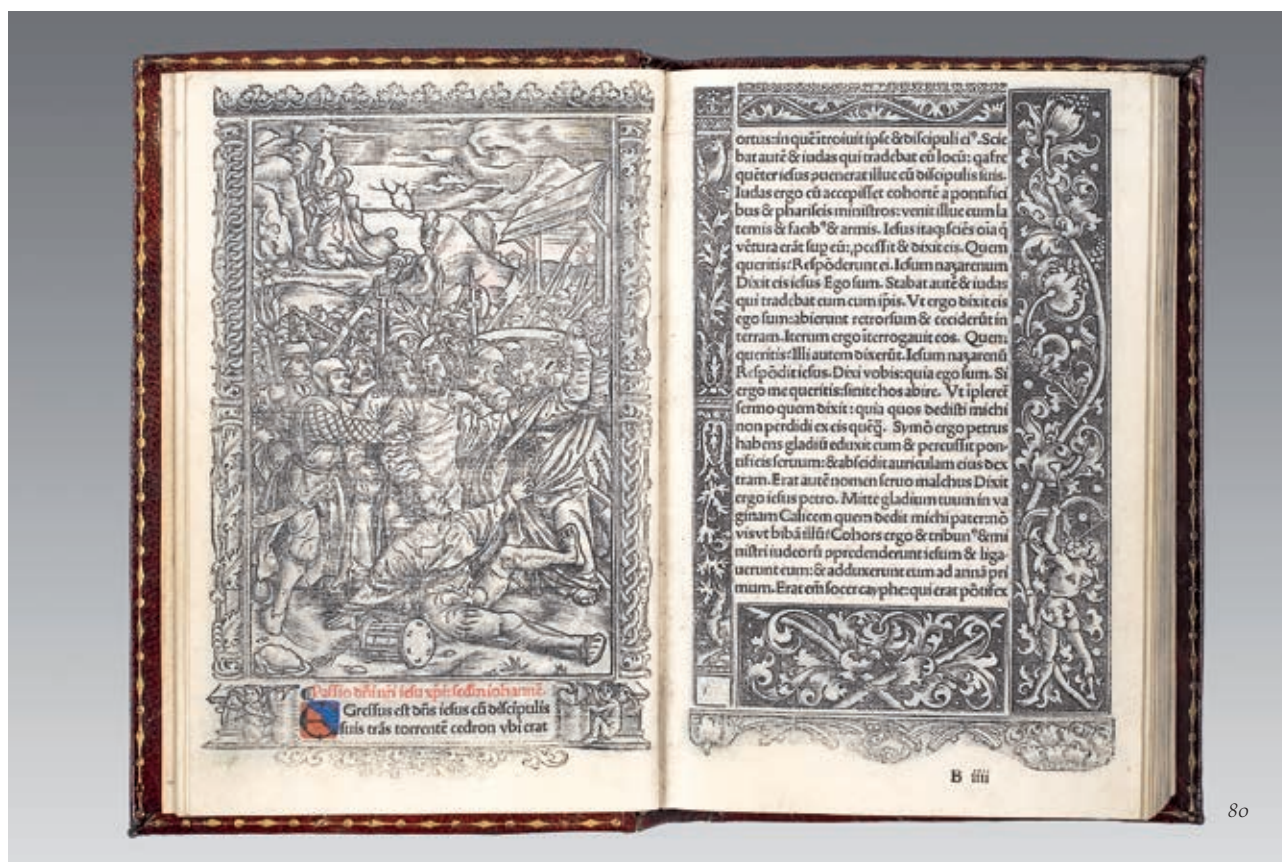 Passio dñi nr̃i iesu xp̃i: scḋm iohannẽ.
EGressus est dñs iesus cũ discipulis
suis trãs torrentẽ cedron vbi erat
ortus: in quẽ ĩtroiuit ipse & discipuli eiꝰ. Scie
bat autẽ & iudas qui tradebat eũ locũ: qa fre
quẽter iesus ꝯuenerat illuc cũ discipulis suis.
Iudas ergo cũ accepisset cohortẽ a pontifici
bus & phariseis ministros: venit illuc cum la
ternis & facibꝰ & armis. Iesus itaqȝ sciẽs oĩa q̃
vẽtura erãt sup eũ: ꝓcessit & dixit eis. Quem
queritis? Respõderunt ei. Iesum nazarenum
Dixit eis iesus Ego sum. Stabat autẽ & iudas
qui tradebat eum cum ip̃is. Vt ergo dixit eis
ego sum: abierunt retrorsum & ceciderũt in
terram. Iterum ergo ĩterrogauit eos. Quem
queritis? Illi autem dixerũt. Iesum nazarenũ
Respõdit iesus. Dixi vobis: quia ego sum. Si
ergo me queritis: sinite hos abire. Vt ĩpleret̃
sermo quem dixit: quia quos dedisti michi
non perdidi ex eis quẽq̃. Symõ ergo petrus
habens gladiũ eduxit eum & percussit pon-
tificis seruum: & abscidit auriculam eius dex
tram. Erat autẽ nomen seruo malchus Dixit
ergo iesus petro. Mitte gladium tuum in va
ginam Calicem quem dedit michi pater: nõ
vis vt bibã illũ? Cohors ergo & tribunꝰ & mi
nistri iudeorũ ꝓprendenderunt iesum & liga-
uerunt eum: & adduxerunt eum ad annã pri
mum. Erat em̃ socer cayphe: qui erat põtifex
B iiii
80